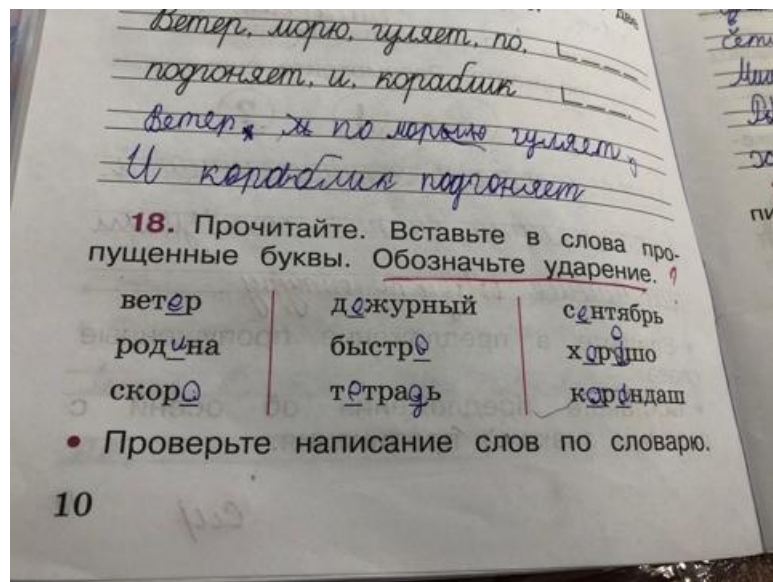 две
Ветер, морю, гуляет, по,
подгоняет, и, кораблик
Ветер по морю гуляет,
И кораблик подгоняет
18. Прочитайте. Вставьте в слова про-
пущенные буквы. Обозначьте ударение.
ветер дежурный сентябрь
родина быстро хорошо
скоро тетрадь карандаш
• Проверьте написание слов по словарю.
10